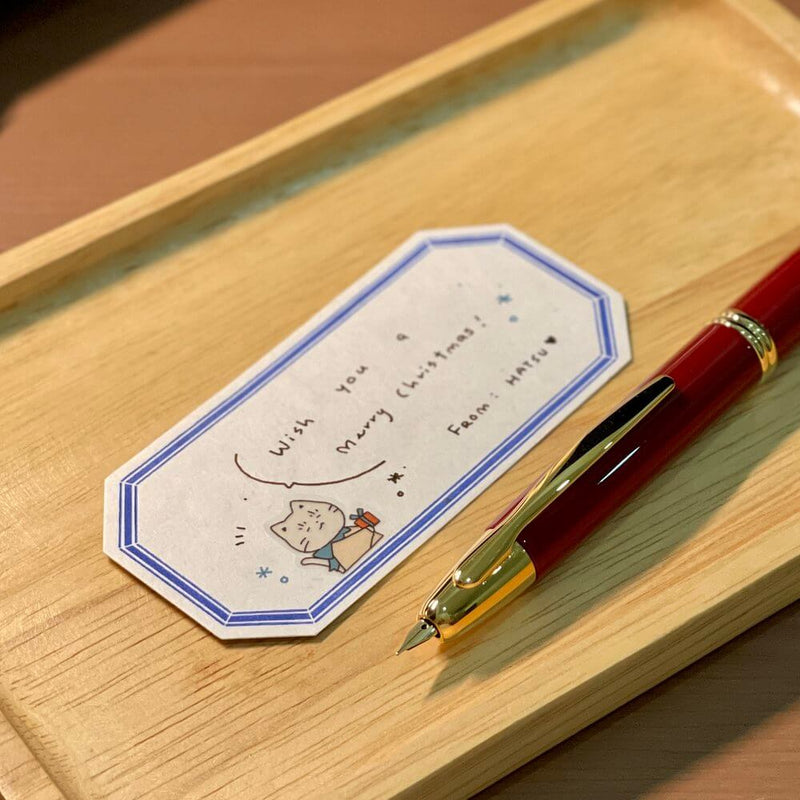 Wish you a
Merry Christmas!
FROM: HATSU♥